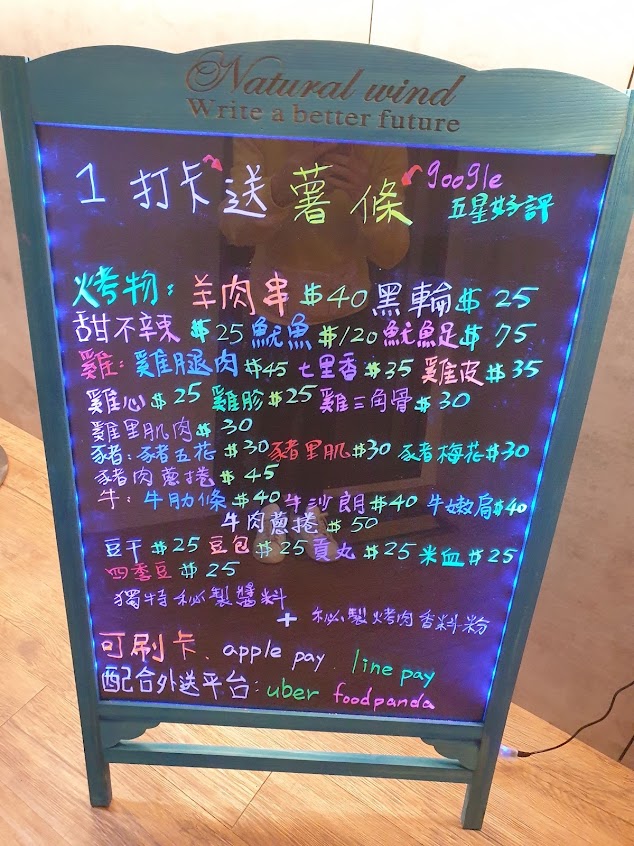 Natural wind
Write a better future
1 打卡送薯條 google
五星好評
烤物: 羊肉串 $40 黑輪 $ 25
甜不辣 $25 魷魚 $120 魷魚足 $ 75
雞: 雞腿肉 $45 七里香 $35 雞皮 $35
雞心 $ 25 雞胗 $25 雞三角骨 $ 30
雞里肌肉 $ 30
豬: 豬五花 $30 豬里肌 $30 豬梅花 $30
豬肉蔥捲 $ 45
牛: 牛肋條 $40 牛沙朗 $40 牛嫩肩 $40
牛肉蔥捲 $ 50
豆干 $25 豆包 $25 貢丸 $25 米血 $25
四季豆 $ 25
獨特秘製醬料
+ 秘製烤肉香料粉
可刷卡、apple pay、line pay
配合外送平台: uber foodpanda